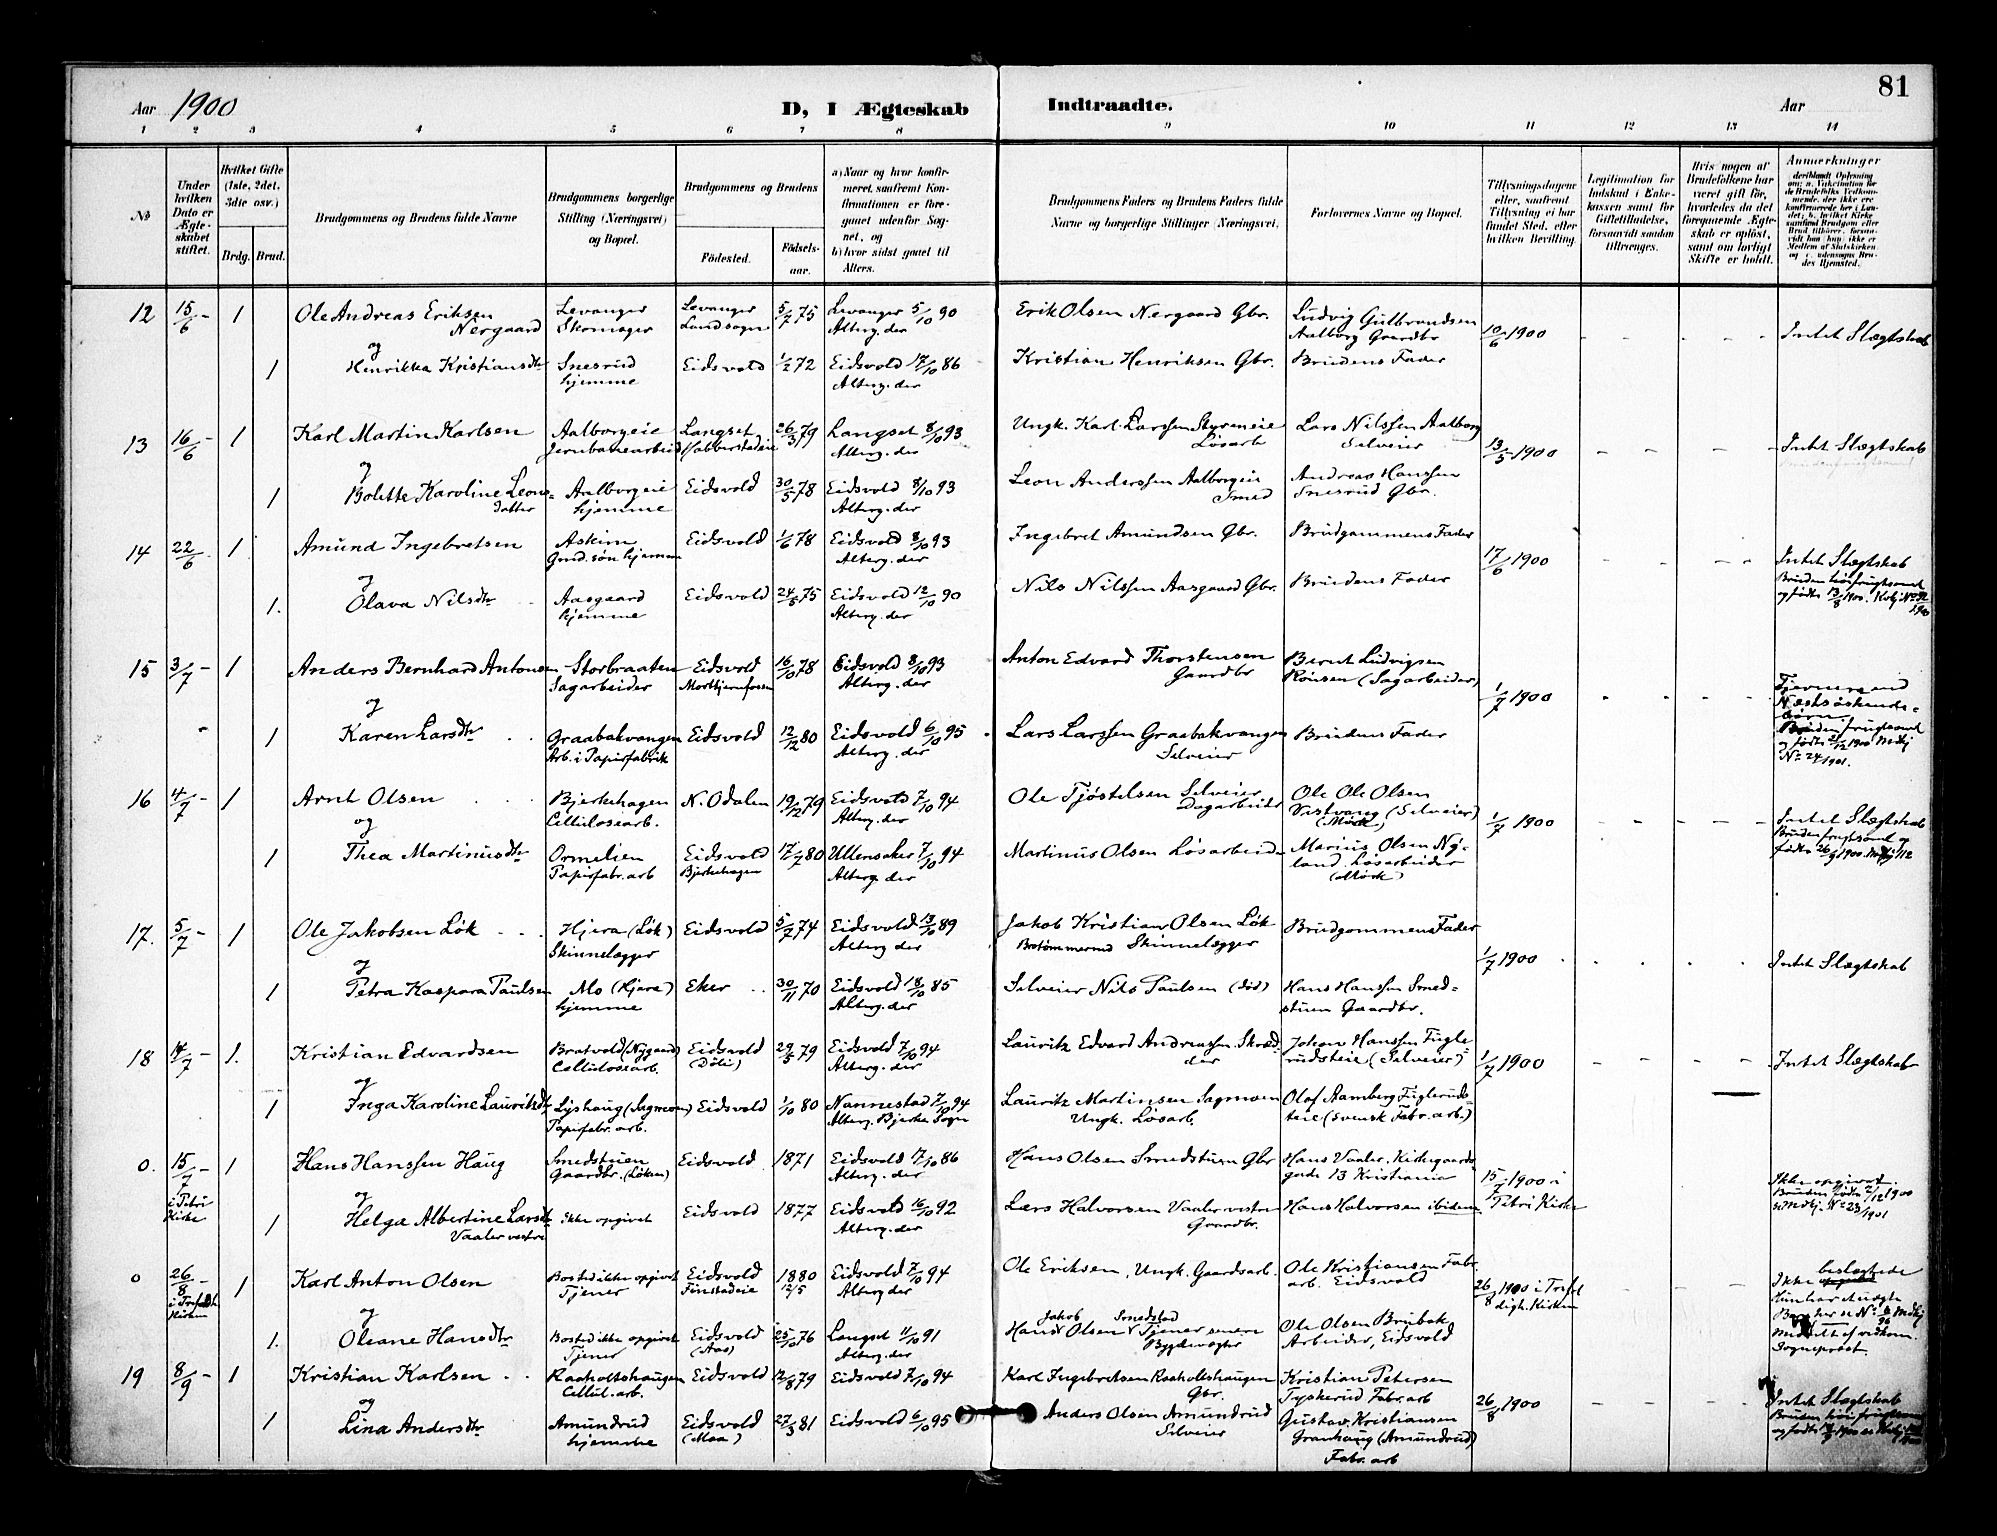 81
Aar 1900
D, I Ægteskab Indtraadte.
Aar
1 2 3 4 5 6 7 8 9 10 11 12 13 14
№
Under hvilken Dato er Ægteskabet stiftet.
Hvilket Gifte (1ste, 2det, 3die osv.)
Brdg. Brud.
Brudgommens og Brudens fulde Navne
Brudgommens borgerlige Stilling (Næringsvei) og Bopæl.
Brudgommens og Brudens
Födested. Födsels-aar.
a) Naar og hvor konfirmeret, saafremt Konfirmationen er foregaaet udenfor Sognet, og
b) hvor sidst gaaet til Alters.
Brudgommens Faders og Brudens Faders fulde Navne og borgerlige Stillinger (Næringsvei).
Forlovernes Navne og Bopæl.
Tillysningsdagene eller, saafremt Tillysning ei har fundet Sted, efter hvilken Bevilling.
Legitimation for Indskud i Enkekassen samt for Giftetilladelse, forsaavidt saadan tiltrænges.
Hvis nogen af Brudefolkene har været gift för, hvorledes da det foregaaende Ægteskab er oplöst, samt om lovligt Skifte er holdt.
Anmerkninger
12 15/6 - 1 Ole Andreas Eriksen Levanger Levanger 5/7 75 Levanger 5/10 90 Erik Olsen Nergaard Gbr. Ludvig Gulbrandsen
Nergaard Skomager Landsogn Alterg. der Aalborg Gaardbr 10/6 1900 - - - - Intet Slægtskab
og
1 Henrikka Kristiansdtr Snesrud Eidsvold 1/2 72 Eidsvold 17/10 86 Kristian Henriksen Gbr. Brudens Fader
hjemme Alterg. der
13 16/6 - 1 Karl Martin Karlsen Aalborgeie Langset 26/3 79 Langset 8/10 93 Ungk. Karl Larssen Styreneie Lars Nilssen Aalborg
Jernbanearbeid Alterg. der Løsarb Selveier 13/5 1900 - - - - Intet Slægtskab
og
1 Bolette Karoline Leons= Aalborgeie Eidsvold 30/5 78 Eidsvold 8/10 93 Leon Anderssen Aalborgeie Andreas Hanssen
datter hjemme Alterg. der Smed Snesrud Gbr.
14 22/6 - 1. Amund Ingebretsen Askim Eidsvold 1/6 78 Eidsvold 8/10 93 Ingebret Amundsen Gbr. Brudgommens Fader
Gmd. søn hjemme Alterg. der 17/6 1900 - - - - Intet Slægtskab
og
1. Olava Nilsdtr Aasgaard Eidsvold 24/5 75 Eidsvold 12/10 90 Nils Nilssen Aasgaard Gbr. Brudens Fader
hjemme Alterg. der
og fødte 13/8 1900.
15 3/7 - 1 Anders Bernhard Antonsen Storbraaten Eidsvold 16/10 78 Eidsvold 8/10 93 Anton Edvard Thorstensen Bernt Ludvigsen
Sagarbeider Alterg. der Gaardbr Rønsen (Sagarbeider) 1/7 1900
og
1 Karen Larsdtr Graabakvangen Eidsvold 12/12 80 Eidsvold 6/10 95 Lars Larssen Graabakvangen Brudens Fader
Arb. i Papirfabrik Alterg. der Selveier
№ 24/1901.
16 4/7 - 1 Arnt Olsen Bjerkehagen N. Odalen 19/12 79 Eidsvold 7/10 94 Ole Tjøstelsen Selveier Ole Ole Olsen
Cellulosearb. Alterg. der Dagarbeider Vestvang (Selveier) (Mørk) 1/7 1900 - - - - Intet Slægtskab
og
1 Thea Martinusdtr Ormelien Eidsvold 17/7 80 Ullensaker 7/10 94 Martinus Olsen Løsarbeider Marius Olsen Ny=
Papirfabr. arb Bjerkehagen Alterg. der land, Løsarbeider
(Mørk)
17. 5/7 - 1 Ole Jakobsen Løk Hjera (Løk) Eidsvold 5/7 74 Eidsvold 13/10 89 Jakob Kristian Olsen Løk Brudgommens Fader
Skinnelægger Alterg. der Skinnelægger 1/7 1900 Intet Slægtskab
og
1 Petra Kaspara Paulsen Mo (Hjera) Eker 30/11 70 Eidsvold 18/10 85 Selveier Nils Paulsen (død) Hans Hanssen Smed=
hjemme Alterg. der stuen Gaardbr.
18 14/7 - 1. Kristian Edvardsen Bratvold (Nygaard) Eidsvold 29/5 79 Eidsvold 7/10 94 Lauritz Edvard Andreassen Skræd= Johan Hanssen Fugle=
Cellulosearb. (Døli) Alterg. der der rudsteie (Selveier) 1/7 1900 - - - - Intet Slægtskab
og
1 Inga Karoline Lauritsdtr Lyshaug (Sagmoen) Eidsvold 1/10 80 Nannestad 7/10 94 Lauritz Martinsen Sagmoen Olaf Aamberg Fuglerud=
Papirfabr. arb. Alterg. Bjerke Sogn Ungk. Løsarb. teie (Svensk Fabr. arb.)
0. 15/7 - 1 Hans Hanssen Haug Smedstuen Eidsvold 1871 Eidsvold 17/10 86 Hans Olsen Smedstuen Gbr Hans Vaaler, Kirkegaards=
i Petri Kirke Gaardbr. (Løken) Alterg. der gade 13 Kristiania 15/7 1900 i Petri Kirke Ikke opgivet.
og
1 Helga Albertine Larsdtr Ikke opgivet Eidsvold 1877 Eidsvold 16/10 92 Lars Halvorsen Vaaler vestre Hans Halvorsen ibidem
Vaaler vestre Alterg. der Gaardbr.
№ 23/1901
0 26/8 - 1 Karl Anton Olsen Bosted ikke opgivet Eidsvold 1880 Eidsvold 7/10 94 Ole Eriksen, Ungk. Gaardsarb. Ole Kristiansen Fabr.
Tjener Finstadeie 12/5 Alterg. der arb. Eidsvold 26/8 1900 i Trefol digh. Kirken Ikke beslægtede
og
1. Oleane Hansdtr Bosted ikke opgivet Eidsvold 25/10 76 Langset 11/10 91 Hans Jakob Olsen Smedstad Ole Olsen Brubak
Tjener (Aas) Alterg. der Tjener senere Bygdevægter Arbeider, Eidsvold
Sogneprest.
19 8/9 - 1 Kristian Karlsen Raaholtshaugen Eidsvold 12/8 79 Eidsvold 7/10 94 Karl Ingebretsen Raaholtshaugen Kristian Petersen
Cellul. arb. Gbr. Tyskerud Fabr. arb 26/8 1900 Intet Slægtskab
og
1 Lina Andersdtr Amundrud Eidsvold 27/3 81 Eidsvold 6/10 95 Anders Olsen Amundrud Gustav Kristiansen
hjemme (Moa) Selveier Granhaug (Amundrud)
Fabr. arb